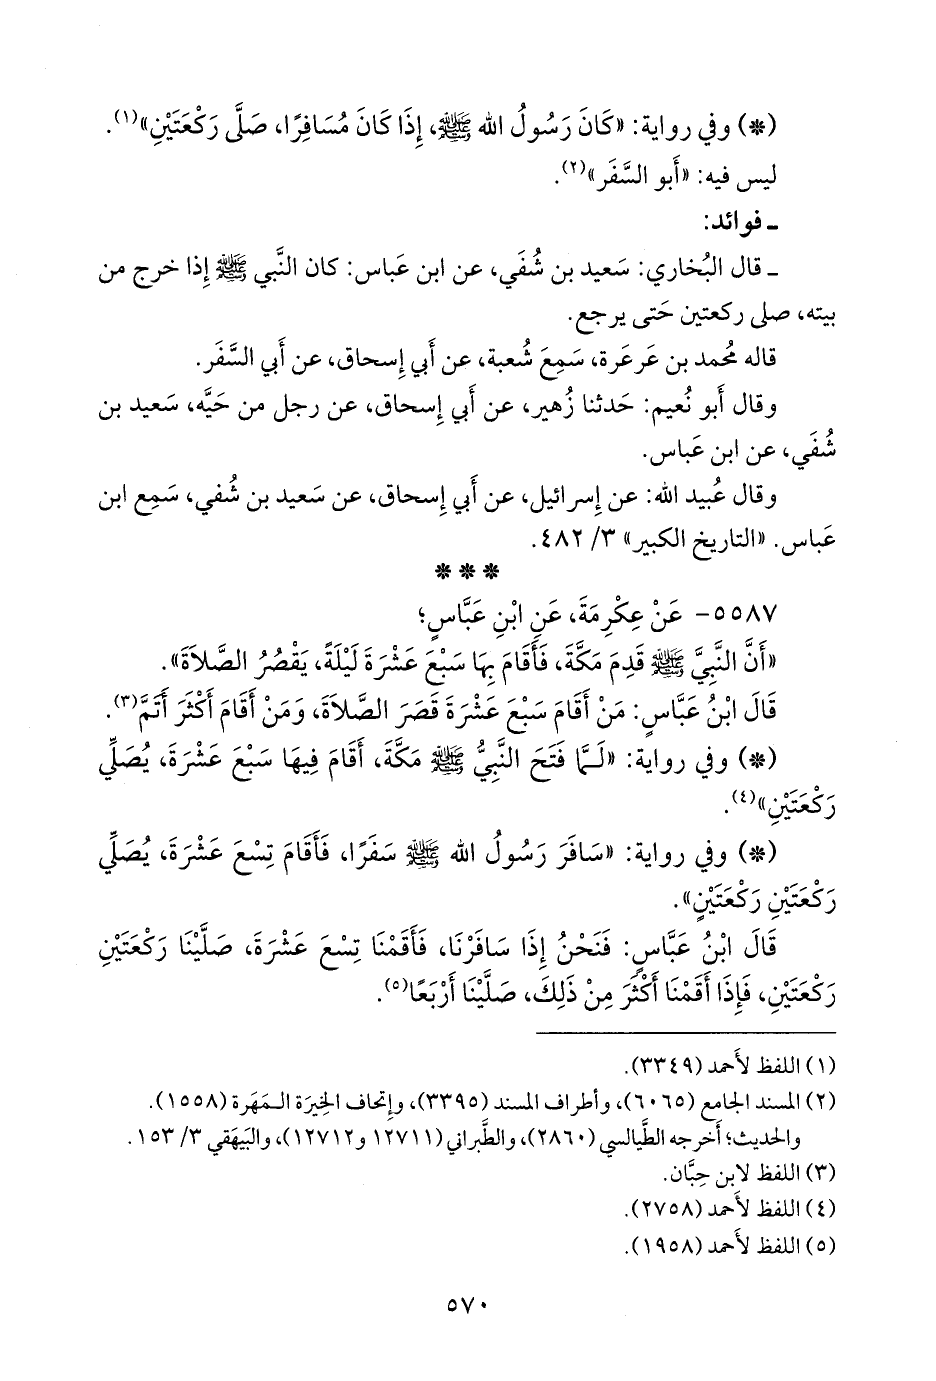 (*) وفي رواية: «كَانَ رَسُولُ الله ﷺ، إِذَا كَانَ مُسَافِرًا، صَلَّى رَكْعَتَيْنِ»(١).
ليس فيه: «أَبو السَّفَر»(٢).
ـ فوائد:
ـ قال البُخاري: سَعيد بن شُفَي، عن ابن عَباس: كان النَّبي ﷺ إِذا خرج من
بيته، صلى ركعتين حَتى يرجع.
قاله مُحمد بن عَرعَرة، سَمِعَ شُعبة، عن أَبي إِسحاق، عن أَبي السَّفَر.
وقال أَبو نُعيم: حَدثنا زُهير، عن أَبي إِسحاق، عن رجل من حَيَّه، سَعيد بن
شُفَي، عن ابن عَباس.
وقال عُبيد الله: عن إِسرائيل، عن أَبي إِسحاق، عن سَعيد بن شُفي، سَمِع ابن
عَباس. «التاريخ الكبير» ٣/ ٤٨٢.
* * *
٥٥٨٧- عَنْ عِكْرِمَةَ، عَنِ ابْنِ عَبَّاسٍ؛
«أَنَّ النَّبِيَّ ﷺ قَدِمَ مَكَّةَ، فَأَقَامَ بِهَا سَبْعَ عَشْرَةَ لَيْلَةً، يَقْصُرُ الصَّلاَةَ».
قَالَ ابْنُ عَبَّاسٍ: مَنْ أَقَامَ سَبْعَ عَشْرَةَ قَصَرَ الصَّلاَةَ، وَمَنْ أَقَامَ أَكْثَرَ أَتَمَّ(٣).
(*) وفي رواية: «لَـمَّا فَتَحَ النَّبِيُّ ﷺ مَكَّةَ، أَقَامَ فِيهَا سَبْعَ عَشْرَةَ، يُصَلِّي
رَكْعَتَيْنِ»(٤).
(*) وفي رواية: «سَافَرَ رَسُولُ الله ﷺ سَفَرًا، فَأَقَامَ تِسْعَ عَشْرَةَ، يُصَلِّي
رَكْعَتَيْنِ رَكْعَتَيْنِ».
قَالَ ابْنُ عَبَّاسٍ: فَنَحْنُ إِذَا سَافَرْنَا، فَأَقَمْنَا تِسْعَ عَشْرَةَ، صَلَّيْنَا رَكْعَتَيْنِ
رَكْعَتَيْنِ، فَإِذَا أَقَمْنَا أَكْثَرَ مِنْ ذَلِكَ، صَلَّيْنَا أَرْبَعًا(٥).
(١) اللفظ لأَحمد (٣٣٤٩).
(٢) المسند الجامع (٦٠٦٥)، وأَطراف المسند (٣٣٩٥)، وإِتحاف الخِيرَة الـمَهَرة (١٥٥٨).
والحديث؛ أَخرجه الطَّيالسي (٢٨٦٠)، والطَّبراني (١٢٧١١ و١٢٧١٢)، والبَيهَقي ٣/ ١٥٣.
(٣) اللفظ لابن حِبَّان.
(٤) اللفظ لأَحمد (٢٧٥٨).
(٥) اللفظ لأَحمد (١٩٥٨).
٥٧٠